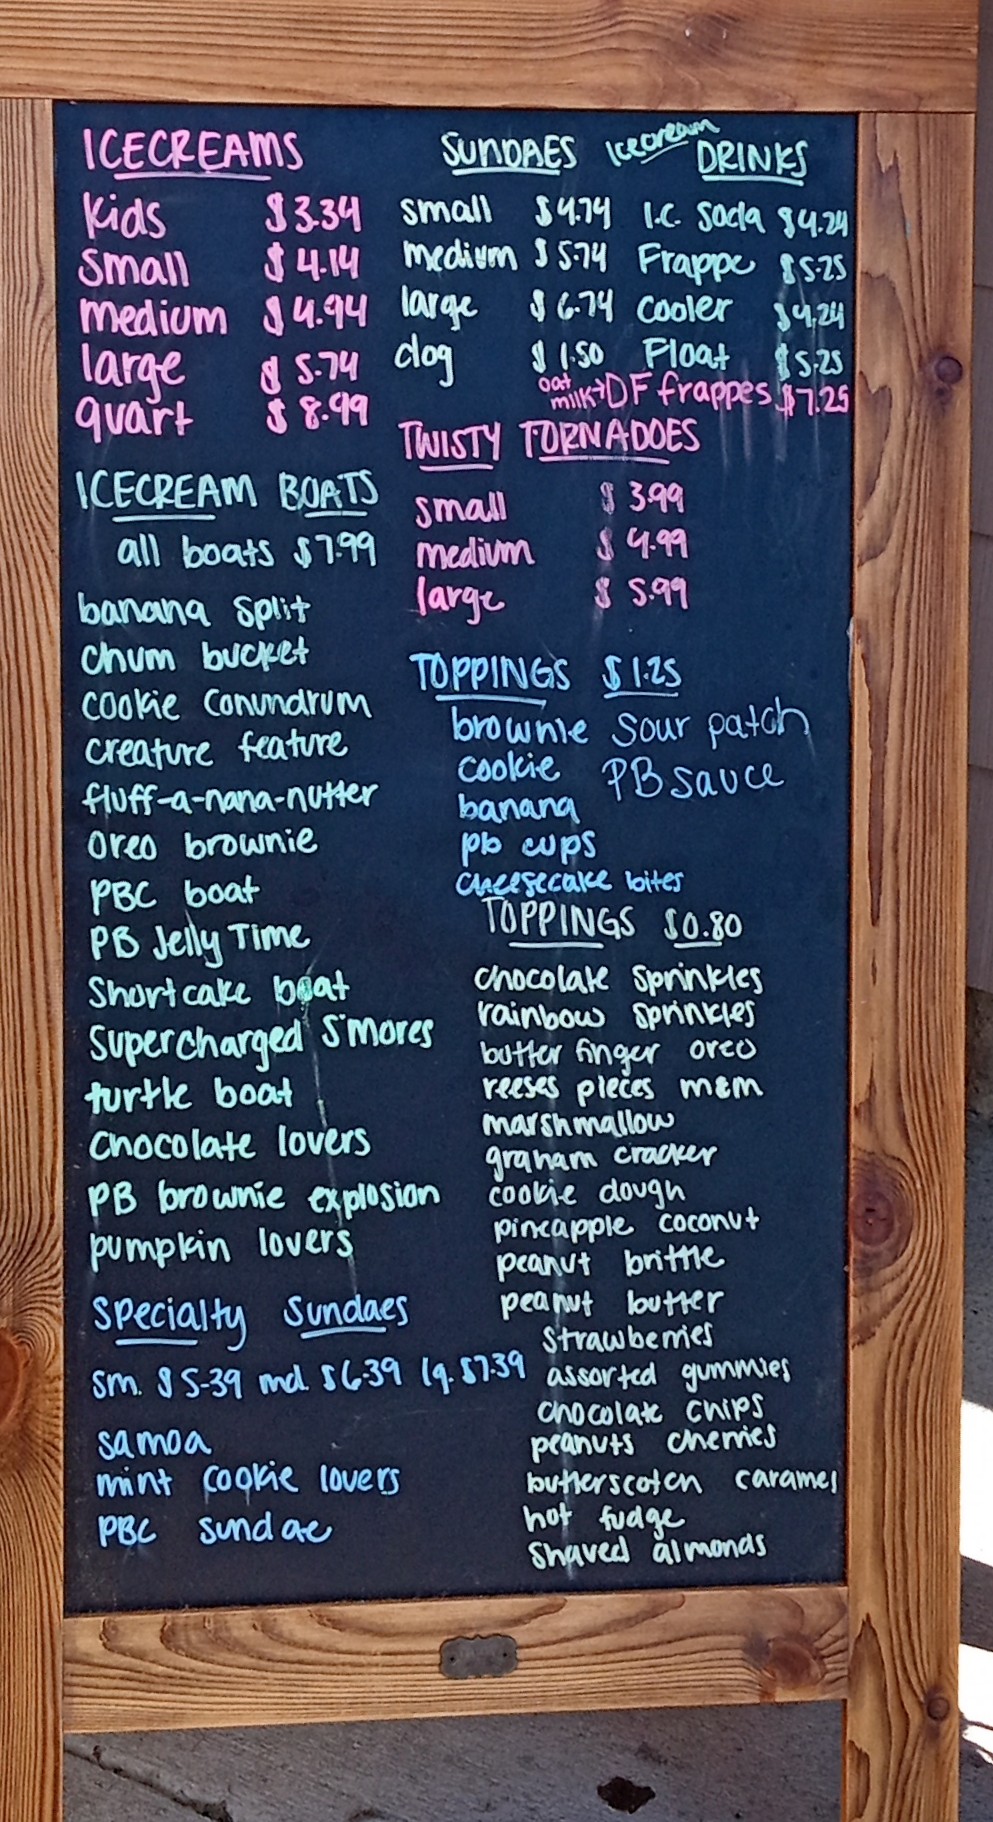 ICECREAMS
kids $3.34
small $4.14
medium $4.94
large $5.74
quart $8.99
ICECREAM BOATS
all boats $7.99
banana split
chum bucket
cookie conundrum
creature feature
fluff-a-nana-nutter
oreo brownie
PBC boat
PB Jelly Time
Shortcake boat
Supercharged S'mores
turtle boat
Chocolate lovers
PB brownie explosion
pumpkin lovers
Specialty Sundaes
sm. $5.39 md. $6.39 lg. $7.39
samoa
mint cookie lovers
PBC sundae
SUNDAES
small $4.74
medium $5.74
large $6.74
dog $1.50
Icecream
DRINKS
I.C. Soda $4.24
Frappe $5.25
Cooler $4.24
Float $5.25
oat milk→DF frappes $7.25
TWISTY TORNADOES
small $3.99
medium $4.99
large $5.99
TOPPINGS $1.25
brownie sour patch
cookie PB sauce
banana
pb cups
cheesecake bites
TOPPINGS $0.80
chocolate sprinkles
rainbow sprinkles
butter finger oreo
reeses pieces m&m
marshmallow
graham cracker
cookie dough
pineapple coconut
peanut brittle
peanut butter
strawberries
assorted gummies
chocolate chips
peanuts cherries
butterscotch caramel
hot fudge
shaved almonds